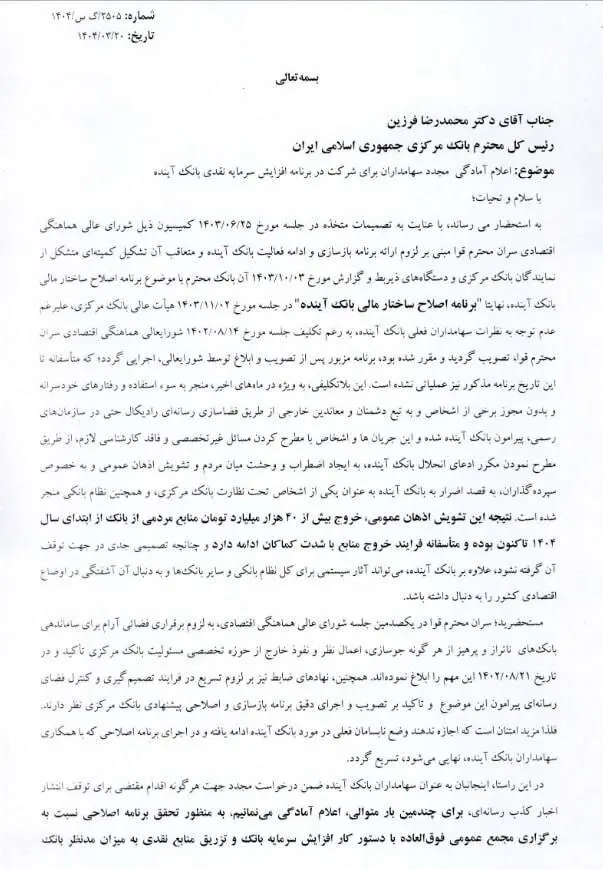 شماره: ۲۵۰۵/ک س/۱۴۰۴
تاریخ: ۱۴۰۴/۰۳/۲۰
بسمه تعالی
جناب آقای دکتر محمدرضا فرزین
رئیس کل محترم بانک مرکزی جمهوری اسلامی ایران
موضوع: اعلام آمادگی مجدد سهامداران برای شرکت در برنامه افزایش سرمایه نقدی بانک آینده
با سلام و تحیات؛
به استحضار می رساند، با عنایت به تصمیمات متخذه در جلسه مورخ ۱۴۰۳/۰۶/۲۵ کمیسیون ذیل شورای عالی هماهنگی
اقتصادی سران محترم قوا مبنی بر لزوم ارائه برنامه بازسازی و ادامه فعالیت بانک آینده و متعاقب آن تشکیل کمیته‌ای متشکل از
نمایندگان بانک مرکزی و دستگاه‌های ذیربط و گزارش مورخ ۱۴۰۳/۱۰/۰۳ آن بانک محترم با موضوع برنامه اصلاح ساختار مالی
بانک آینده، نهایتا "برنامه اصلاح ساختار مالی بانک آینده" در جلسه مورخ ۱۴۰۳/۱۱/۰۲ هیأت عالی بانک مرکزی، علیرغم
عدم توجه به نظرات سهامداران فعلی بانک آینده، به رغم تکلیف جلسه مورخ ۱۴۰۲/۰۸/۱۴ شورایعالی هماهنگی اقتصادی سران
محترم قوا، تصویب گردید و مقرر شده بود، برنامه مزبور پس از تصویب و ابلاغ توسط شورایعالی، اجرایی گردد؛ که متأسفانه تا
این تاریخ برنامه مذکور نیز عملیاتی نشده است. این بلاتکلیفی، به ویژه در ماه‌های اخیر، منجر به سوء استفاده و رفتارهای خودسرانه
و بدون مجوز برخی از اشخاص و به تبع دشمنان و معاندین خارجی از طریق فضاسازی رسانه‌ای رادیکال حتی در سازمان‌های
رسمی، پیرامون بانک آینده شده و این جریان ها و اشخاص با مطرح کردن مسائل غیرتخصصی و فاقد کارشناسی لازم، از طریق
مطرح نمودن مکرر ادعای انحلال بانک آینده، به ایجاد اضطراب و وحشت میان مردم و تشویش اذهان عمومی و به خصوص
سپرده‌گذاران، به قصد اضرار به بانک آینده به عنوان یکی از اشخاص تحت نظارت بانک مرکزی، و همچنین نظام بانکی منجر
شده است. نتیجه این تشویش اذهان عمومی، خروج بیش از ۴۰ هزار میلیارد تومان منابع مردمی از بانک از ابتدای سال
۱۴۰۴ تاکنون بوده و متأسفانه فرایند خروج منابع با شدت کماکان ادامه دارد و چنانچه تصمیمی جدی در جهت توقف
آن گرفته نشود، علاوه بر بانک آینده، می‌تواند آثار سیستمی برای کل نظام بانکی و سایر بانک‌ها و به دنبال آن آشفتگی در اوضاع
اقتصادی کشور را به دنبال داشته باشد.
مستحضرید؛ سران محترم قوا در یکصدمین جلسه شورای عالی هماهنگی اقتصادی، به لزوم برقراری فضائی آرام برای ساماندهی
بانک‌های ناتراز و پرهیز از هر گونه جوسازی، اعمال نظر و نفوذ خارج از حوزه تخصصی مسئولیت بانک مرکزی تأکید و در
تاریخ ۱۴۰۲/۰۸/۲۱ این مهم را ابلاغ نموده‌اند. همچنین، نهادهای ضابط نیز بر لزوم تسریع در فرایند تصمیم‌گیری و کنترل فضای
رسانه‌ای پیرامون این موضوع و تاکید بر تصویب و اجرای دقیق برنامه بازسازی و اصلاحی پیشنهادی بانک مرکزی نظر دارند.
فلذا مزید امتنان است که اجازه ندهند وضع نابسامان فعلی در مورد بانک آینده ادامه یافته و در اجرای برنامه اصلاحی که با همکاری
سهامداران بانک آینده، نهایی می‌شود، تسریع گردد.
در این راستا، اینجانبان به عنوان سهامداران بانک آینده ضمن درخواست مجدد جهت هرگونه اقدام مقتضی برای توقف انتشار
اخبار کذب رسانه‌ای، برای چندمین بار متوالی، اعلام آمادگی می‌نمائیم، به منظور تحقق برنامه اصلاحی نسبت به
برگزاری مجمع عمومی فوق‌العاده با دستور کار افزایش سرمایه بانک و تزریق منابع نقدی به میزان مدنظر بانک